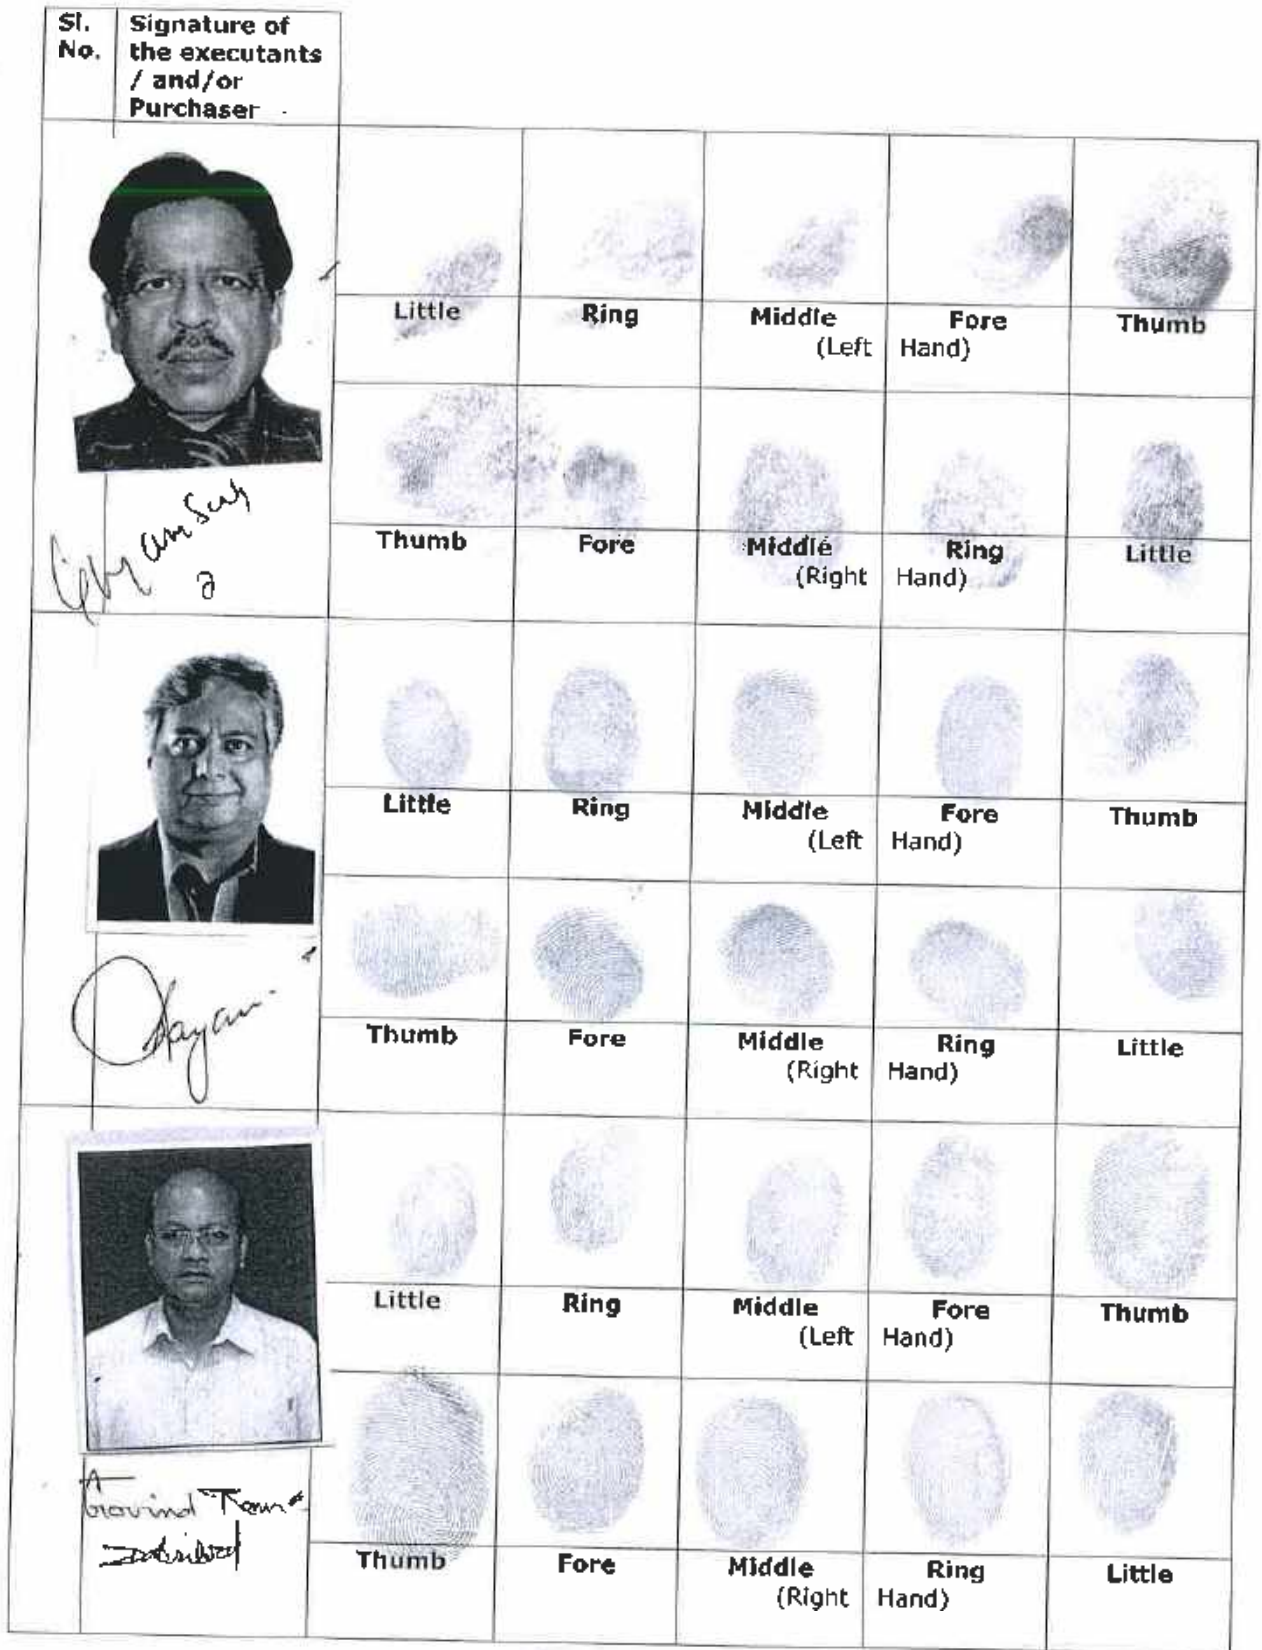 Sl. No.
Signature of the executants / and/or Purchaser
Little Ring Middle Fore Thumb
(Left Hand)
Thumb Fore Middle Ring Little
(Right Hand)
Little Ring Middle Fore Thumb
(Left Hand)
Thumb Fore Middle Ring Little
(Right Hand)
Little Ring Middle Fore Thumb
(Left Hand)
Govind Ram
Thumb Fore Middle Ring Little
(Right Hand)